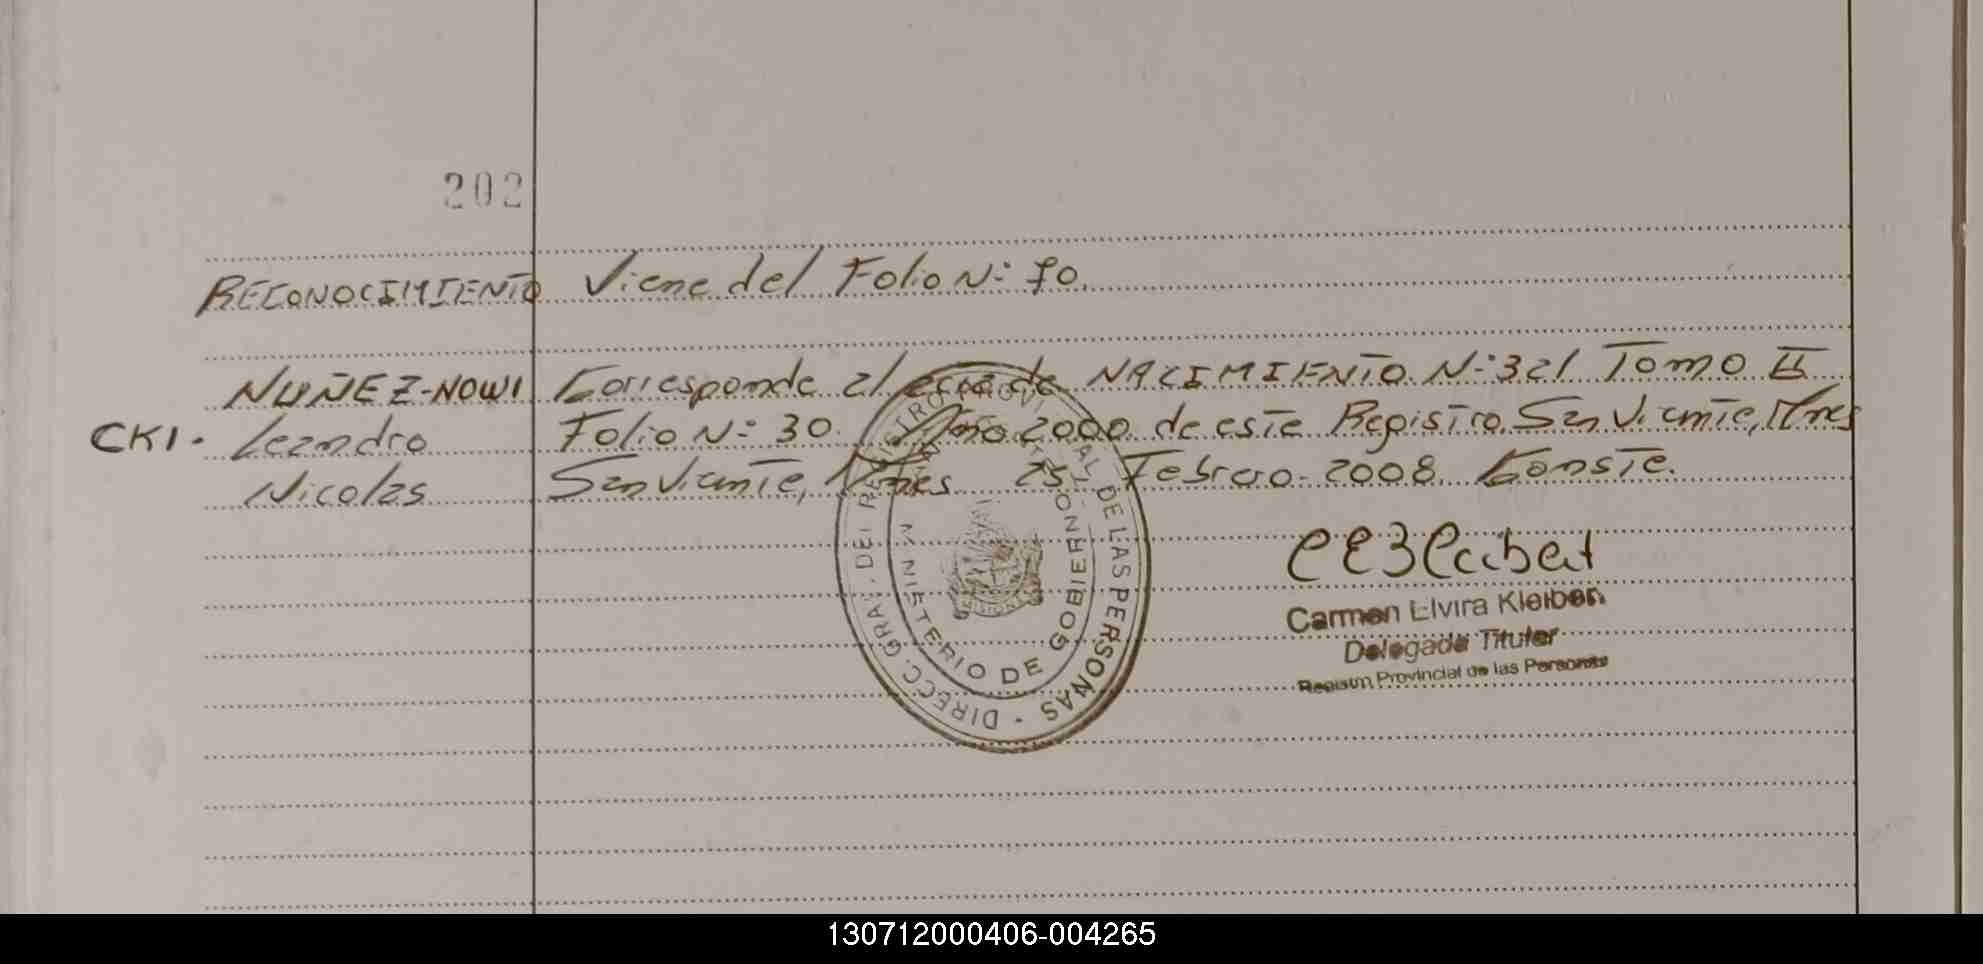 202
RECONOCIMIENTO Viene del Folio N: 70.
NUÑEZ-NOWI Corresponde al acta de NACIMIENTO N: 321 Tomo II
CKI. Leandro Folio N: 30. Año 2000 de este Registro San Vicente, Mnes
Nicolas San Vicente, Mnes 25 Febrero 2008. Conste.
DIRECC. GRAL. DEL REGISTRO PROVINCIAL DE LAS PERSONAS
MINISTERIO DE GOBIERNO
MISIONES
Carmen Elvira Kleiben
Delegada Titular
Registro Provincial de las Personas
130712000406-004265